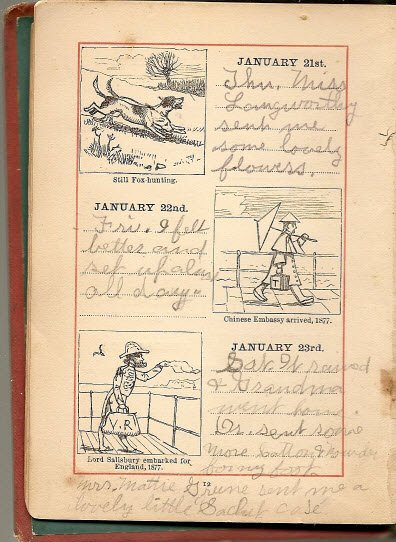 JANUARY 21st.
Thu. Miss
Langworthy
sent me
some lovely
flowers.
Still Fox-hunting.
JANUARY 22nd.
Fri. I felt
better and
set up
all day
Chinese Embassy arrived, 1877.
JANUARY 23rd.
Sat. It rained
& Grandma
went home.
Dr. sent some
more cotton & powder
for my foot
V.R
Lord Salisbury embarked for
England, 1877.
12
Mrs. Mattie Greene sent me a
lovely little Sachet case